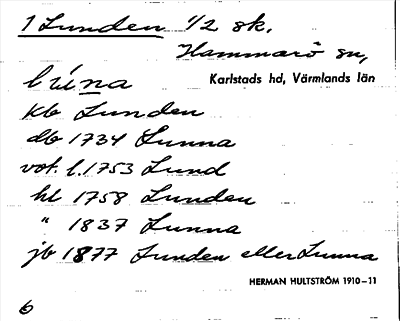 1 Lunden 1/2 sk.
Hammarö sn,
Karlstads hd, Värmlands län
lúna
kb Lunden
db 1734 Lunna
vot. l. 1753 Lund
hl 1758 Lunden
" 1837 Lunna
jb 1877 Lunden eller Lunna
HERMAN HULTSTRÖM 1910–11
6